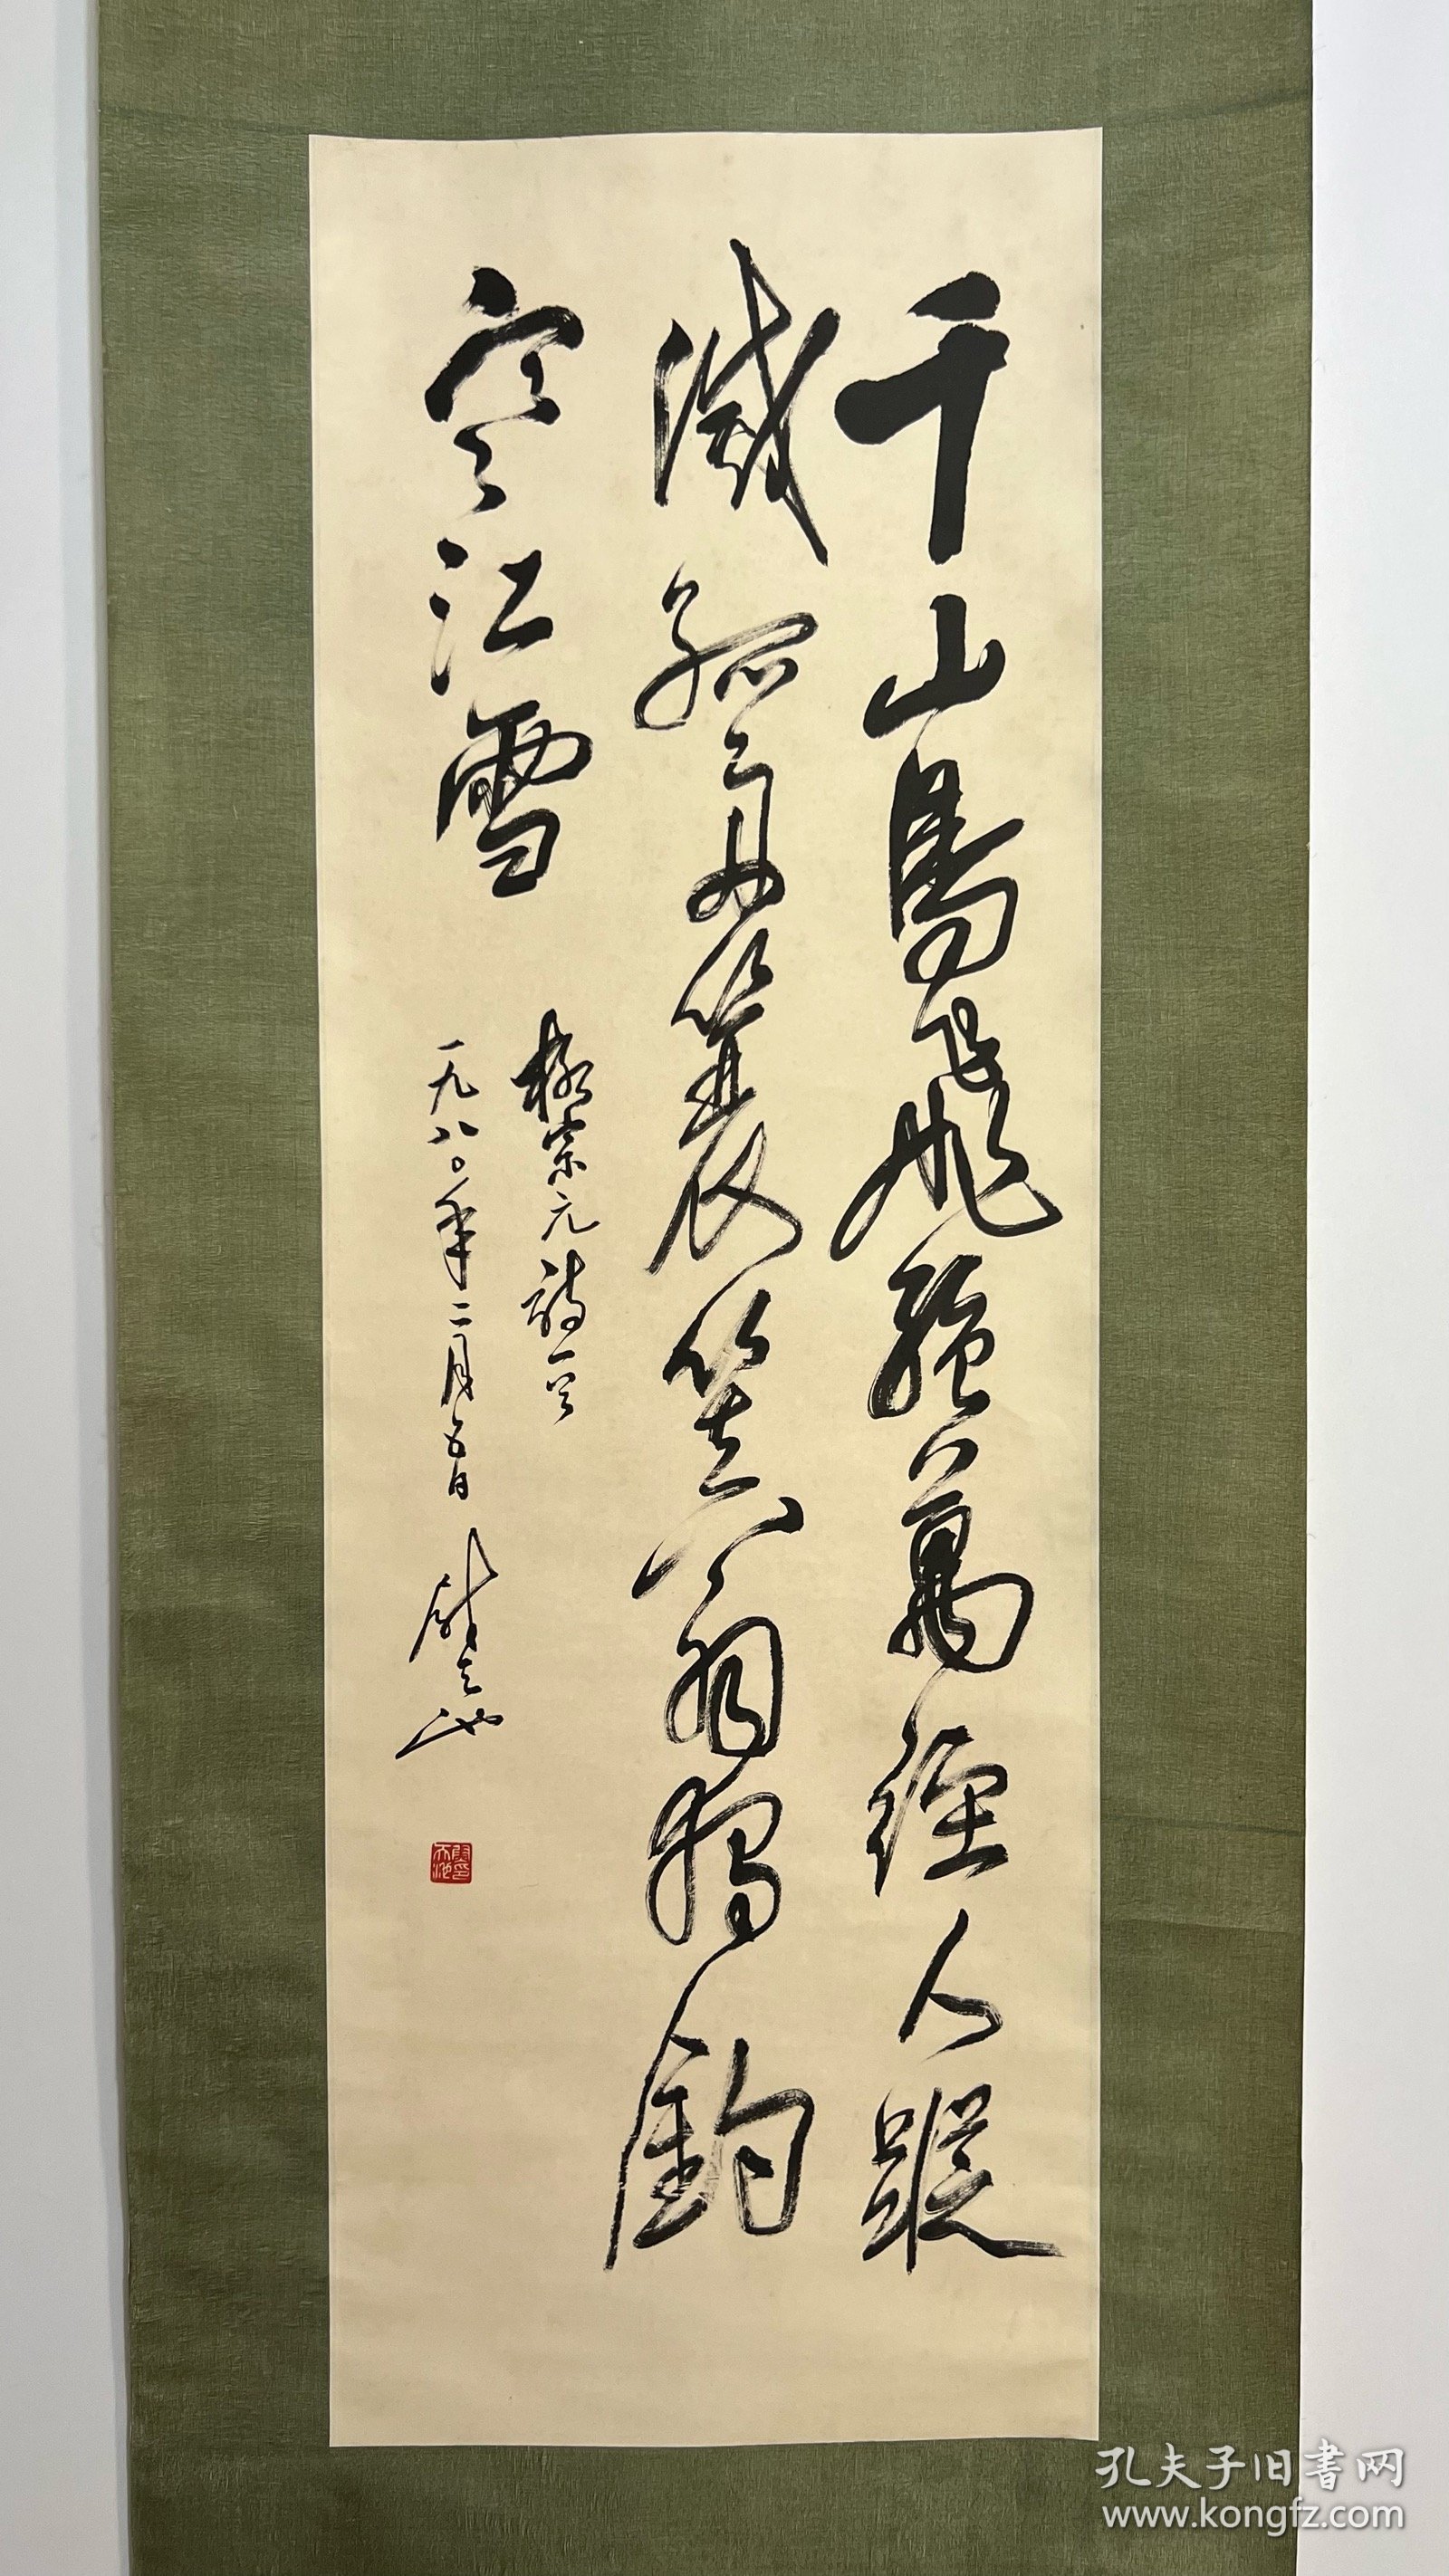 千山鳥飛絕萬徑人蹤
滅孤舟簑笠翁獨釣
寒江雪
柳宗元詩一首
一九八〇年二月五日 尉天池
孔夫子旧書网
www.kongfz.com